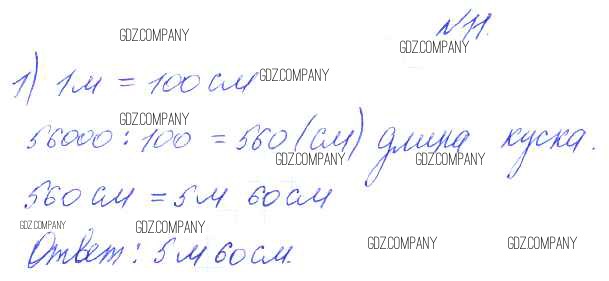 №11.
GDZ.COMPANY
GDZ.COMPANY
1) 1м = 100см
GDZ.COMPANY
GDZ.COMPANY
56000 : 100 = 560 (см) длина куска.
GDZ.COMPANY
GDZ.COMPANY
560 см = 5 м 60 см
GDZ.COMPANY
GDZ.COMPANY
Ответ: 5 м 60 см.
GDZ.COMPANY
GDZ.COMPANY